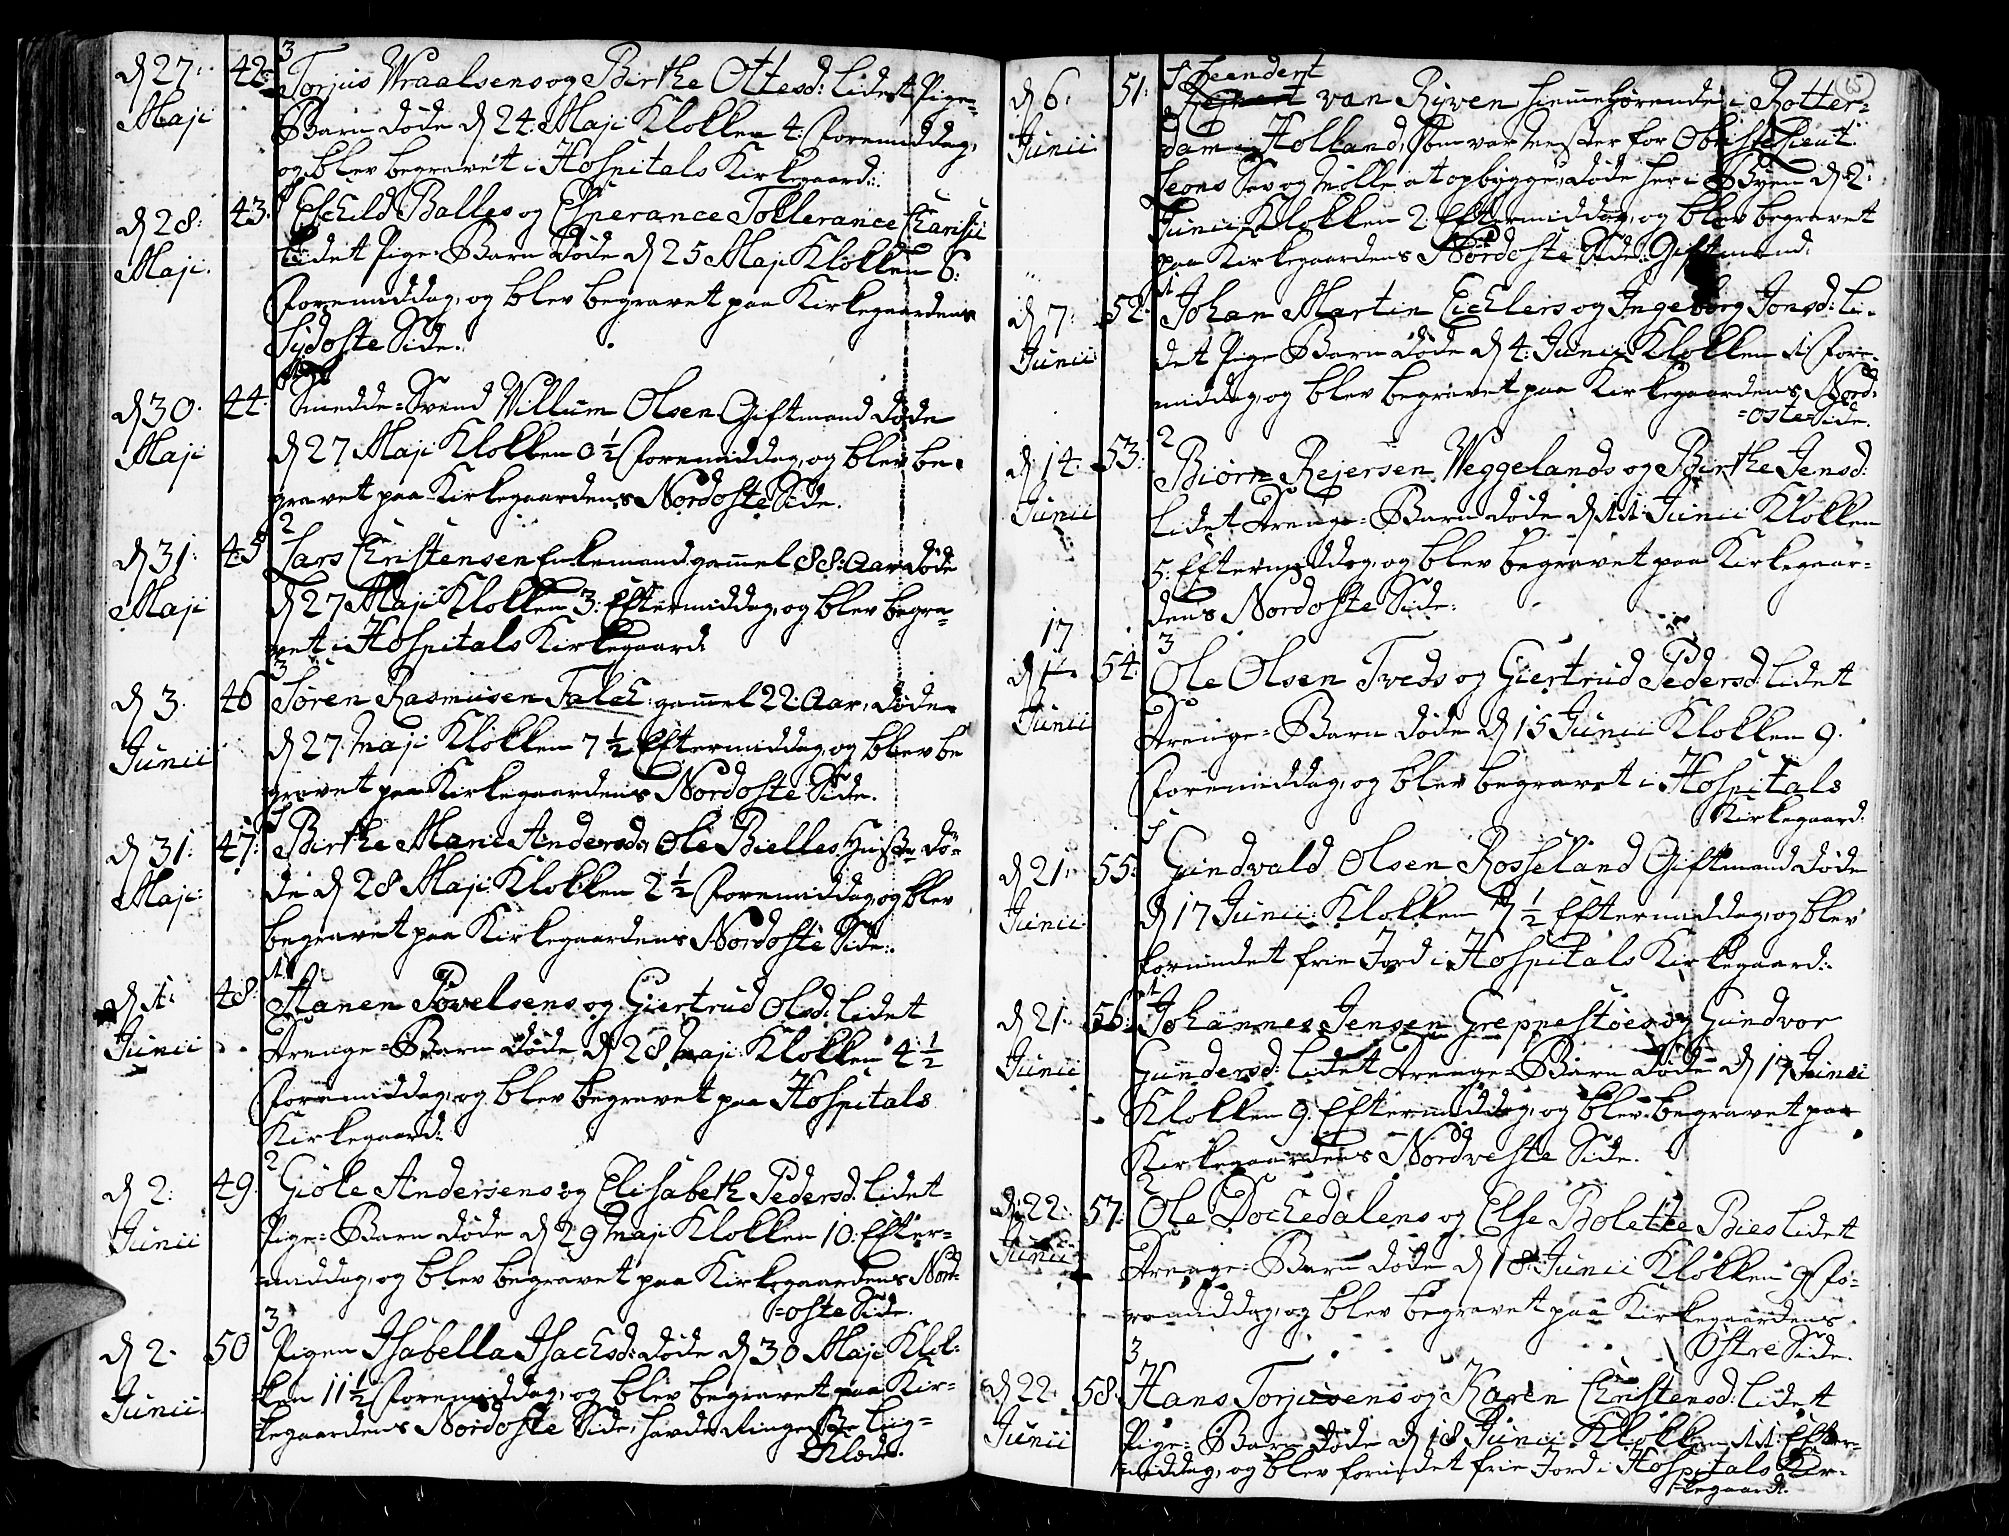 3
d 27: 42: Torjus Wraalsens og Birthe Ottesd: lidet Pige=
Maji Barn døde d 24 Maji Klokken 4 Formiddag,
og blev begravet i Hospitals Kirkegaard:
d 28: 43: Eschild Balles og Esperance Tollerance Charisii
Maji. lidet Pige=Barn døde d 25 Maji Klokken 6:
Formiddag, og blev begravet paa Kirkegaardens
Sydoste Side.
d 30. 44. Smedde=Svend Villum Olsen Giftmand døde
Maji d 27 Maji Klokken 0½ Formiddag, og blev be=
gravet paa Kirkegaardens Nordoste Side.
2
d 31: 45 Lars Christensen Enkemand gammel 88: Aar døde
Maji d 27 Maji Klokken 3: Eftermiddag, og blev begra=
vet i Hospitals Kirkegaard
3
d 3. 46 Søren Rasmusen Falck: gammel 22: Aar, døde
Junii d 27 Maji Klokken 7½ Eftermiddag, og blev be
gravet paa Kirkegaardens Nordoste Side.
d 31: 47: Birthe Marie Andersd: Ole Bielles Hustr dø=
Maji: de d 28 Maji Klokken 2½ Formiddag, og blev
begravet paa Kirkegaardens Nordoste Side.
1
d 1: 48: Hanen Povelsens og Giertrud Olsd: lidet
Junii Drenge=Barn døde d 28 Maji Klokken 4½
Formiddag, og blev begravet paa Hospitals
Kirkegaard:
2
d 2: 49. Giøle Andersens og Elisabeth Pedersd: lidet
Junii Pige=Barn døde d 29 Maji Klokken 10: Efter=
middag, og blev begravet paa Kirkegaardens Nord=
=oste Side.
3
d 2. 50 Pigen Isabella Isachsd: døde d 30 Maji Klok=
Junii. ken 11½ Formiddag, og blev begravet paa Kir=
kegaardens Nordoste Side, havde Ringeste Liig=
Klæde.
65
Leendert
d 6. 51. van Ryven hiemmehørende i Rotter=
Junii dam i Holland, som var Mester for Obriste Lieut:
Leons Sav og Mølle at opbygge, døde her i Byen d 2:
Junii Klokken 2 Eftermiddag, og blev begravet
paa Kirkegaardens Nordoste Side: Giftmand.
1
d 7: 52. Johan Martin Eichlers og Ingeborg Jonsd: li=
Junii det Pige Barn døde d 4: Junii Klokken 11 For=
middag, og blev begravet paa Kirkegaardens Nord=
=oste Side.
2
d 14: 53: Biørn Rejersen Weggelands og Birthe Jensd:
Junii lidet Drenge=Barn døde d 11 Junii Klokken
5: Eftermiddag, og blev begravet paa Kirkegaar=
dens Nordoste Side:
17
3
d 54 Ole Olsen Tveds og Giertrud Pedersd: lidet
Junii Drenge=Barn døde d 15 Junii Klokken 9.
Formiddag, og blev begravet i Hospitals
Kirkegaard:
d 21: 55: Gundvald Olsen Rosseland Giftmand døde
Junii d 17 Junii Klokken 7½ Eftermiddag, og blev
forundet frie Jord i Hospitals Kirkegaard:
1
d 21 56: Johannes Jensen Greppestøes og Gundvor
Junii Gundersd: lidet Drenge=Barn døde d 17 Junii
Klokken 9. Eftermiddag, og blev begravet paa
Kirkegaardens Nordveste Side.
2
d 22. 57: Ole Dochedalens og Else Bolette Bies lidet
Junii Drenge=Barn døde d 18 Junii Klokken 9 Fo=
remiddag, og blev begravet paa Kirkegaardens
Østre Side.
3
d 22. 58 Hans Torjusens og Karen Christensd: lidet
Junii Pige=Barn døde d 18 Junii Klokken 11: Efter=
middag, og blev forundet frie Jord i Hospitals Kir=
kegaard.